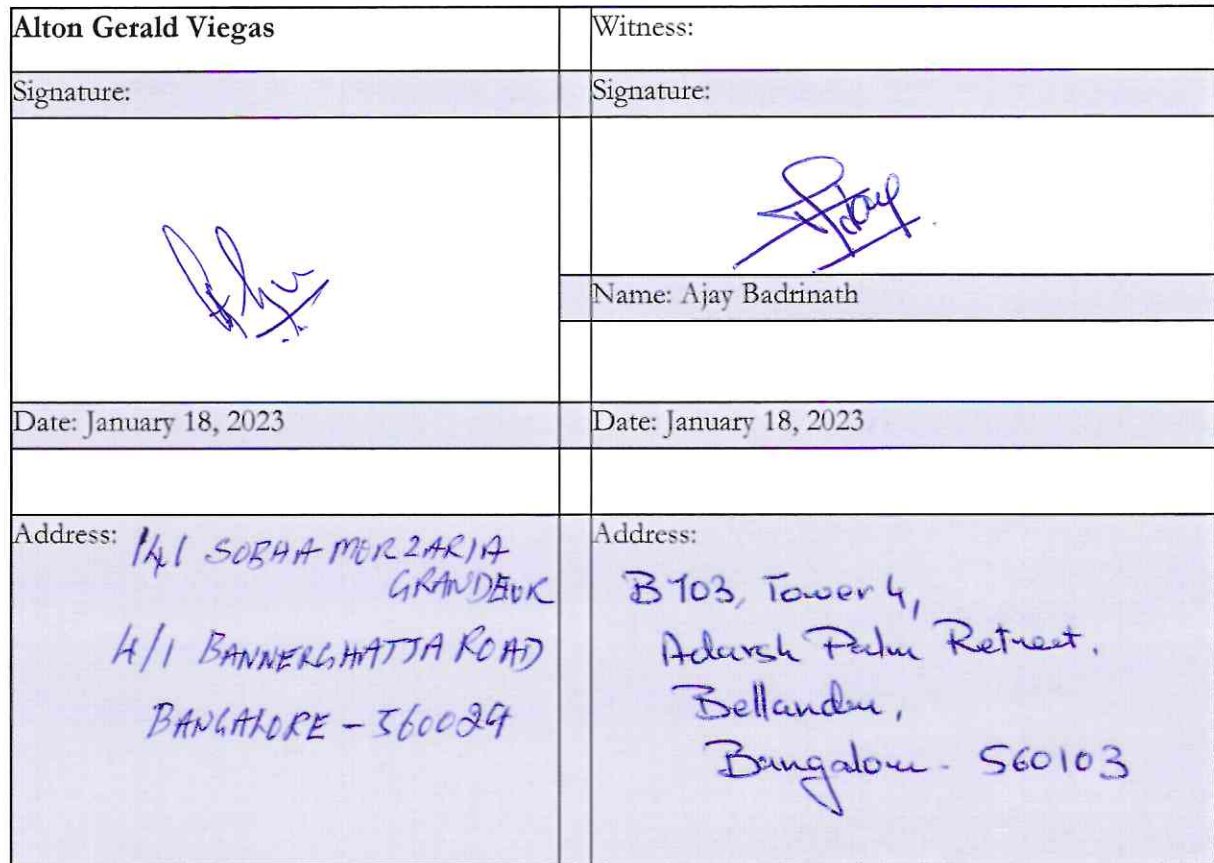 Alton Gerald Viegas
Witness:
Signature:
Signature:
Name: Ajay Badrinath
Date: January 18, 2023
Date: January 18, 2023
Address:
141 SOBHA MERZARIA
GRANDEUR
4/1 BANNERGHATTA ROAD
BANGALORE - 560029
Address:
B 103, Tower 4,
Adarsh Palm Retreat.
Bellandur,
Bangalore - 560103